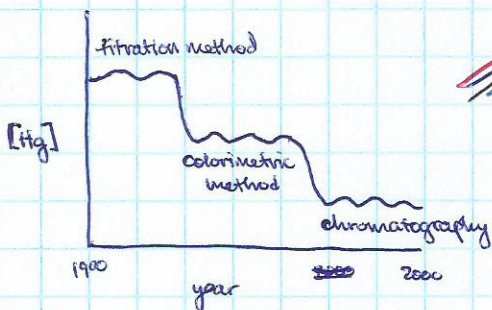 titration method
[Hg]
colorimetric
method
chromatography
1900
2000
year